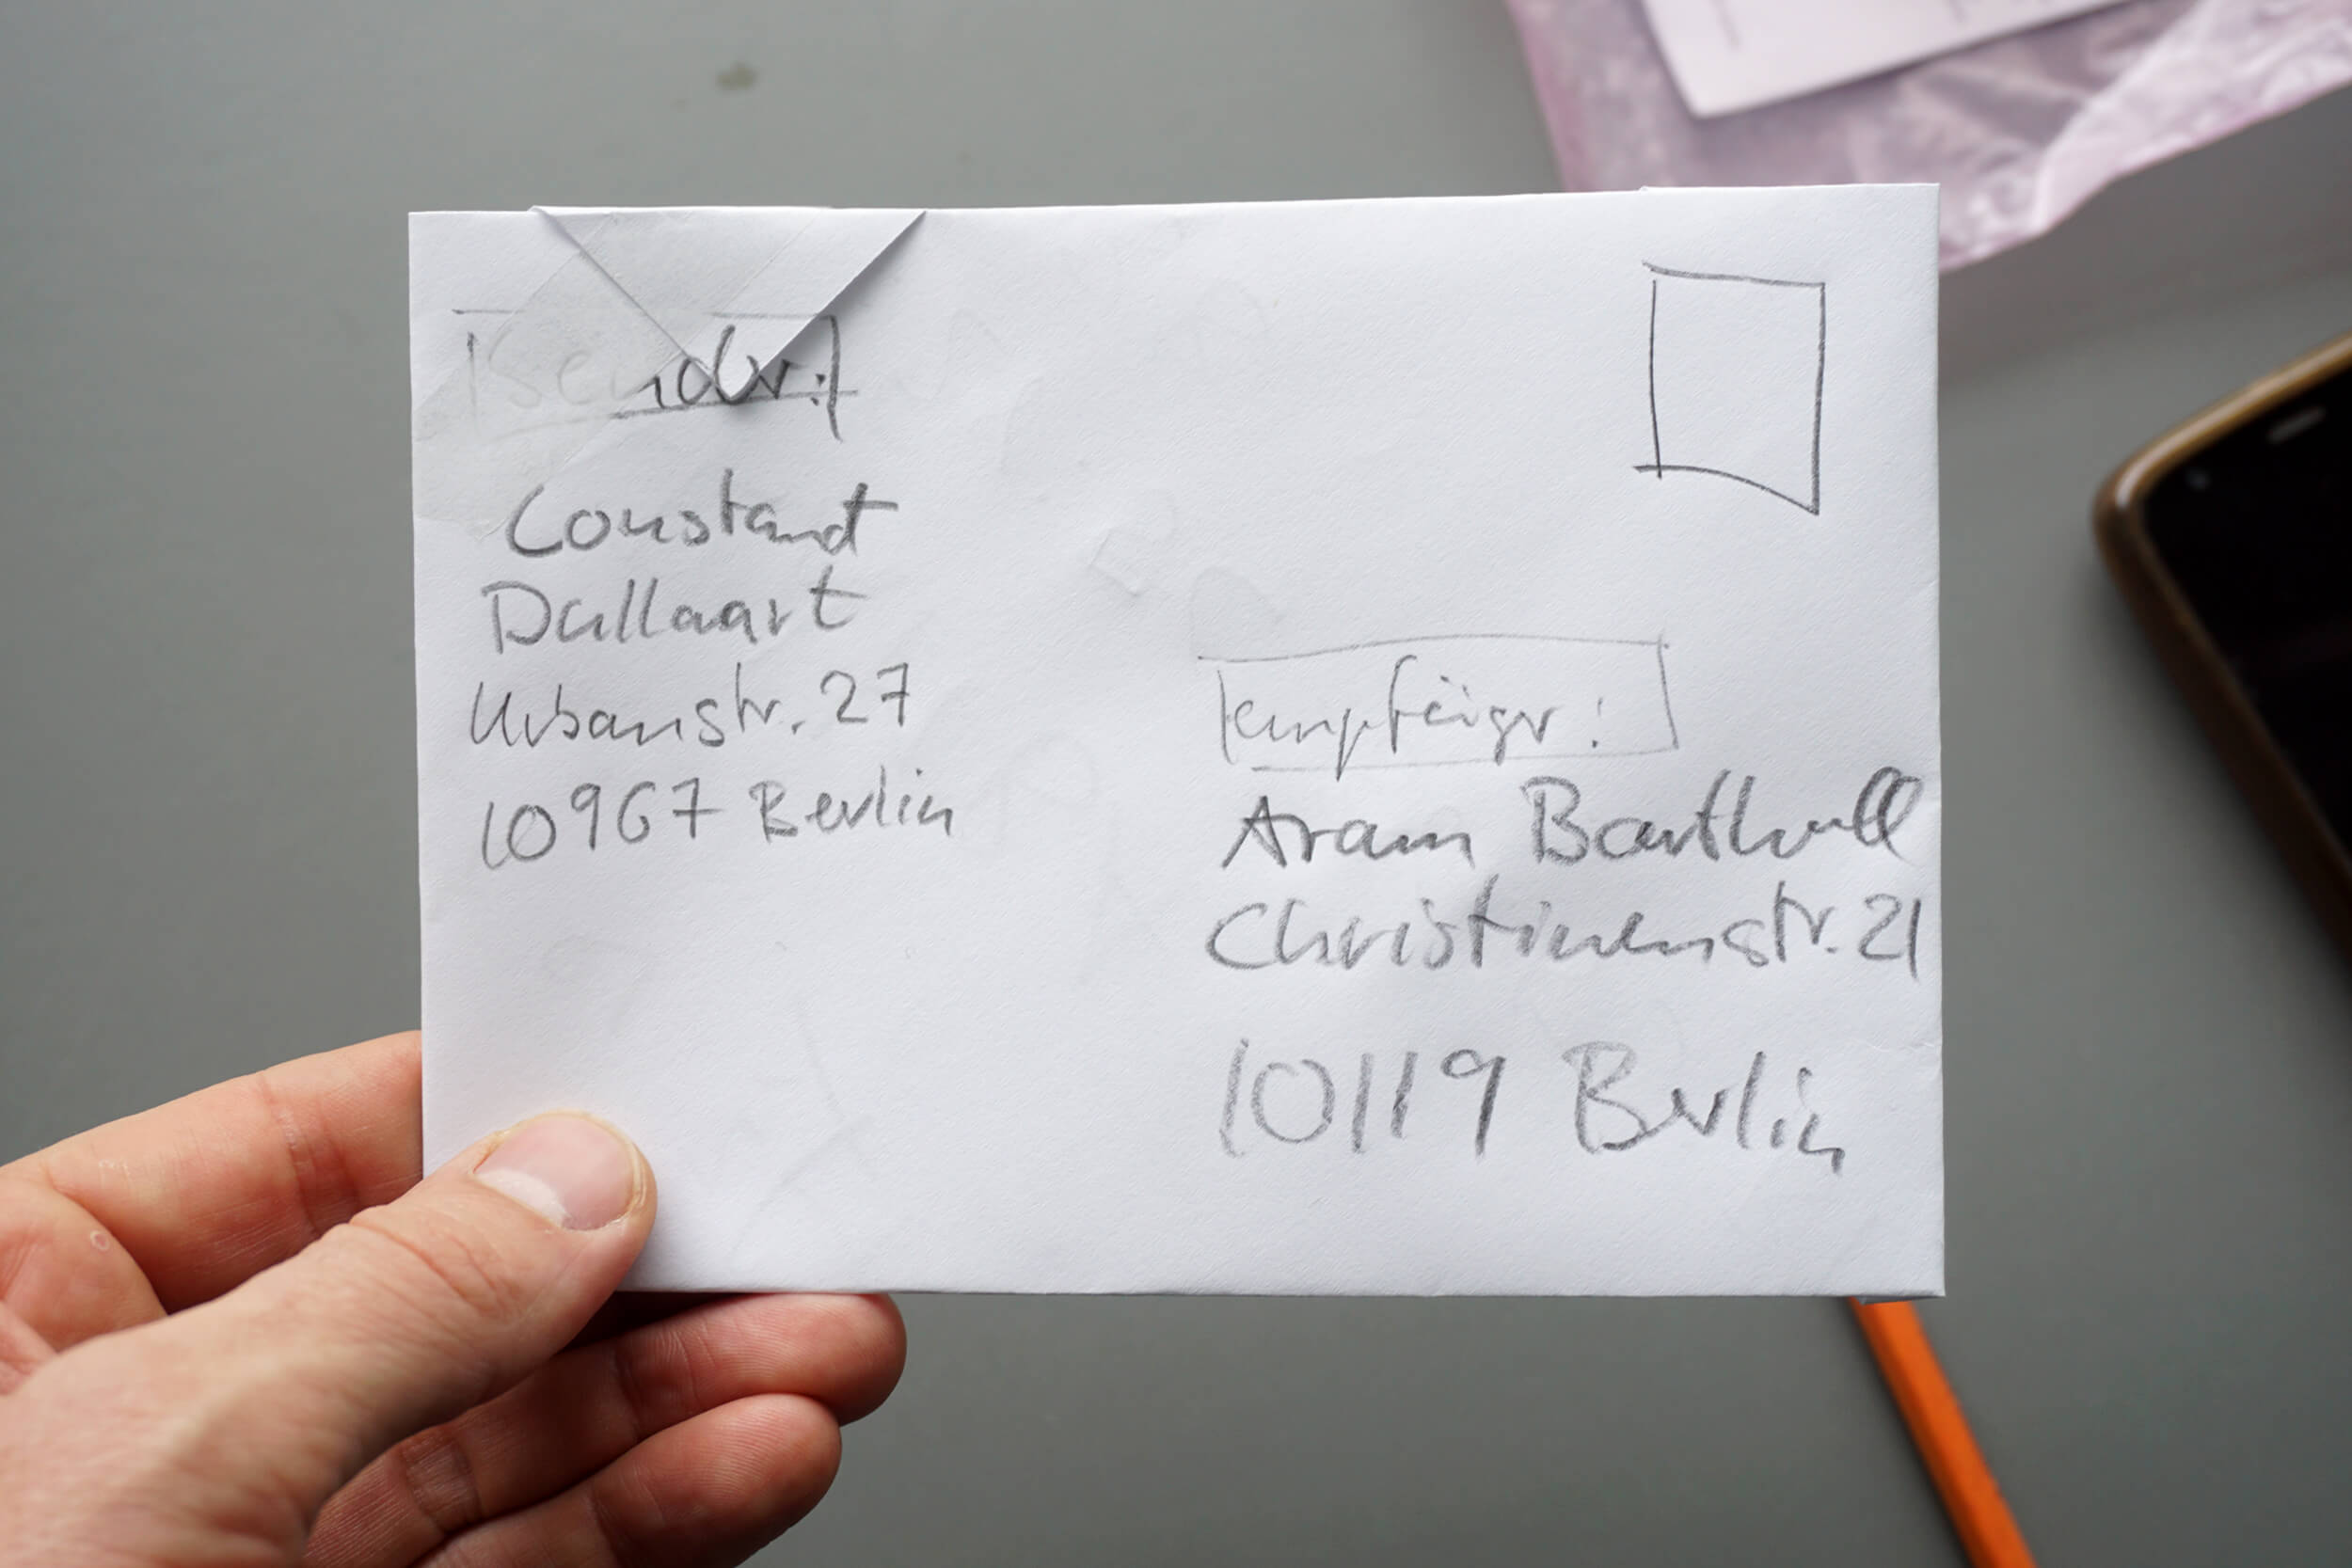 Sender:
Constant
Dullaart
Urbanstr. 27
10967 Berlin
Empfänger:
Aram Bartholl
Christinenstr. 21
10119 Berlin